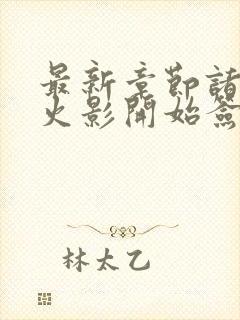 最新章節請
火影開始簽
林太乙